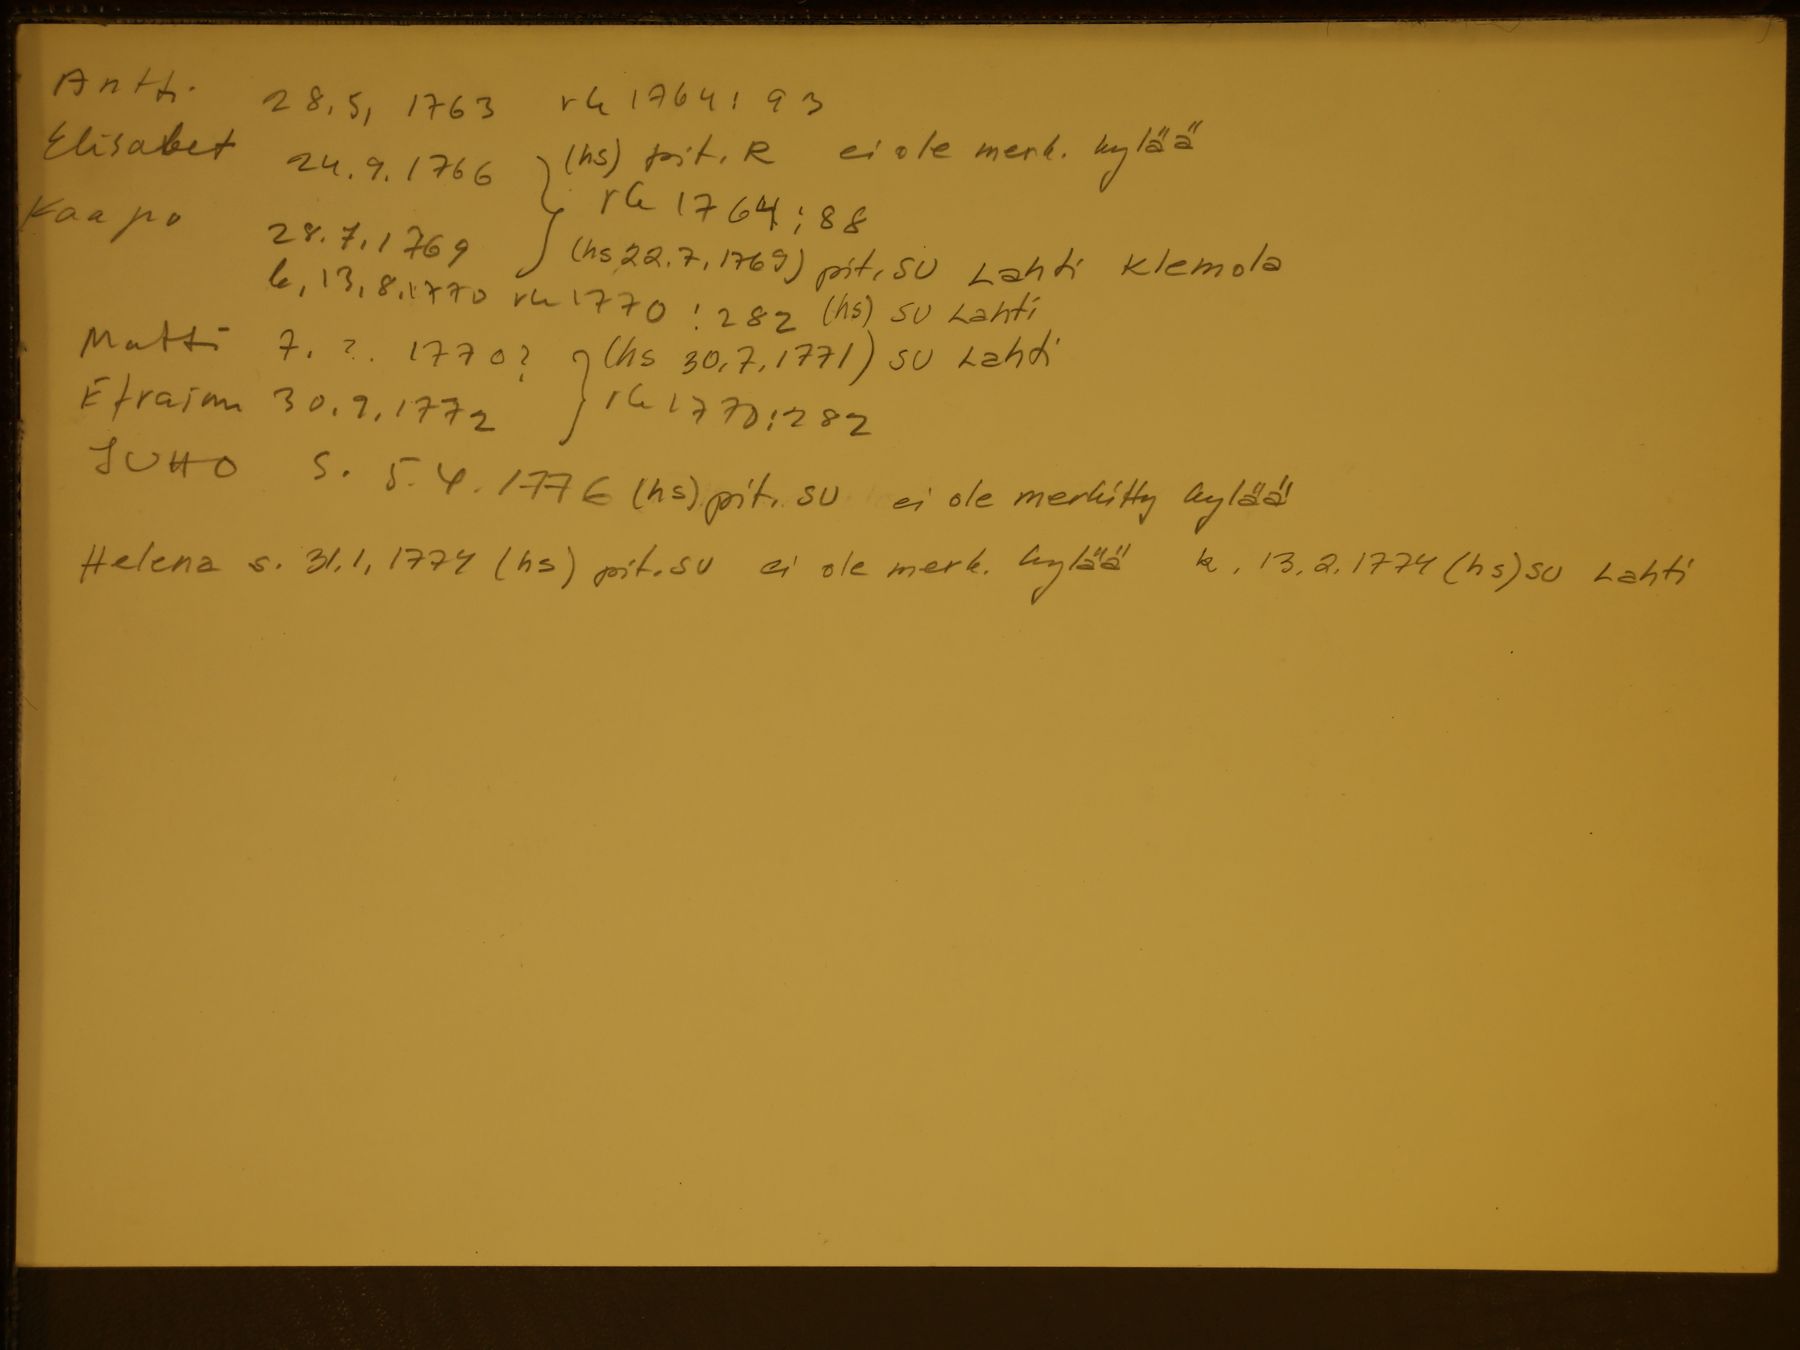 Antti 28.5. 1763 rk 1764: 93
Elisabet 24.9.1766 (hs) pit. R ei ole merk. kylää
rk 1764:88
Kaapo 28.7.1769 (hs 22.7.1769) pit. SU Lahti Klemola
k. 13.8.1770 rk 1770:282 (hs) SU Lahti
Matti 7. ?. 1770? (hs 30.7.1771) SU Lahti
Efraim 30.9.1772 rk 1770:282
JUHO s. 5.4.1776 (hs) pit. SU ei ole merkitty kylää
Helena s. 31.1.1774 (hs) pit. SU ei ole merk. kylää k. 13.2.1774 (hs) SU Lahti